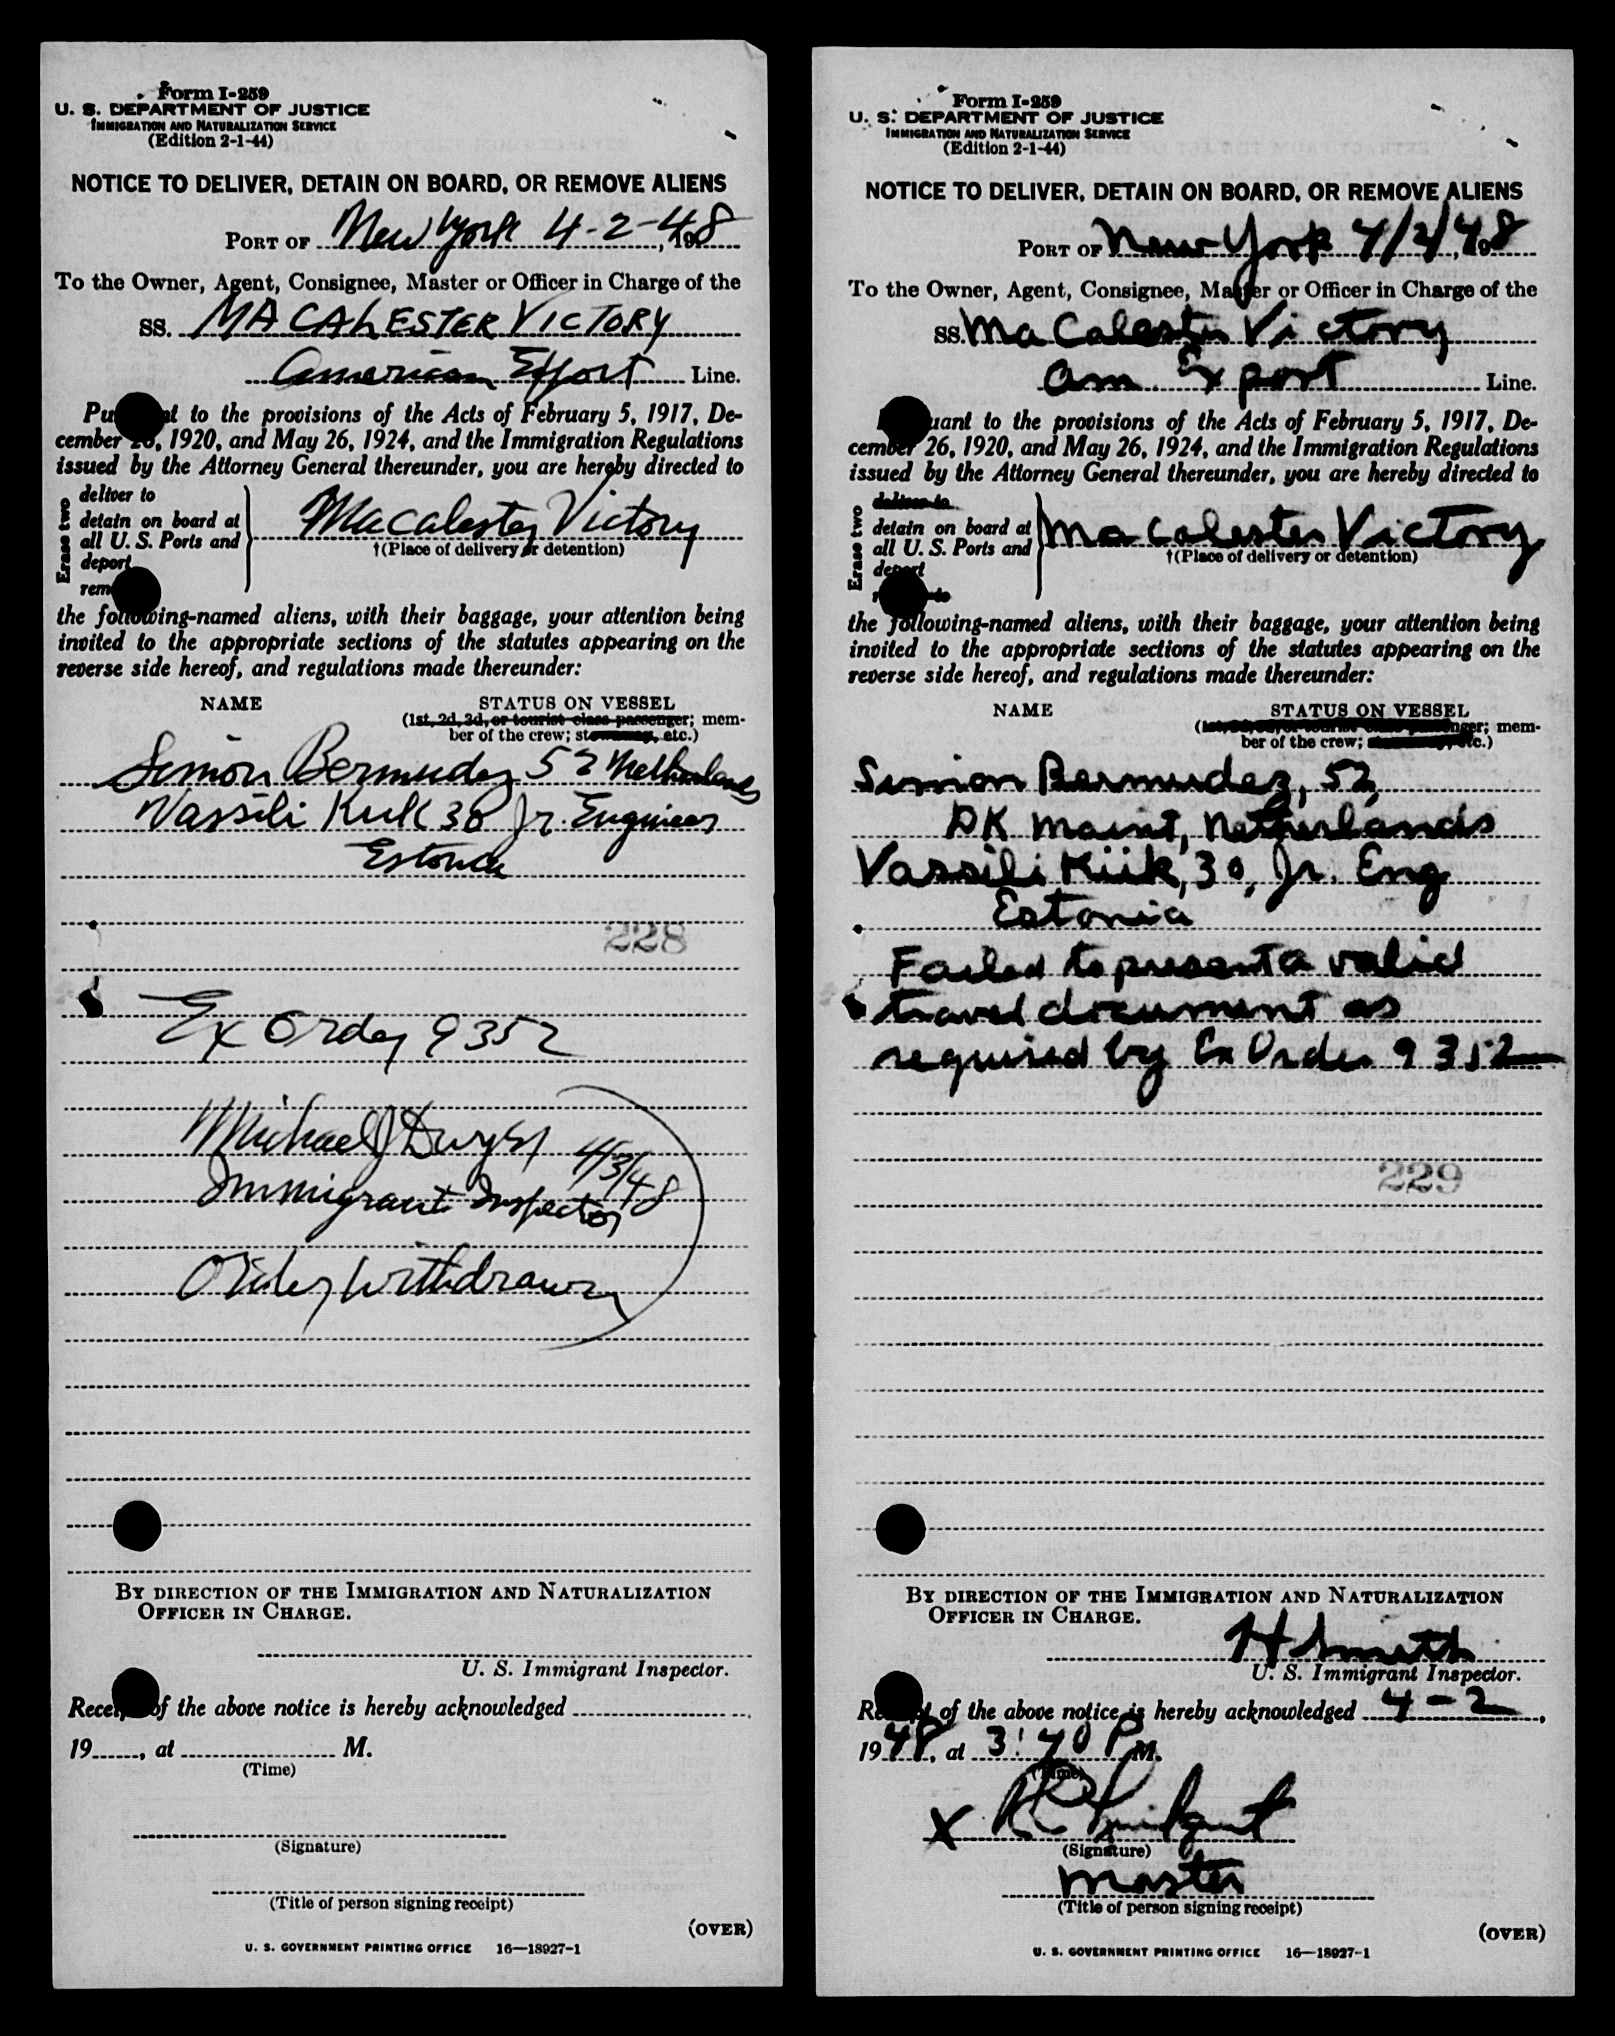 Form I-259
U. S. DEPARTMENT OF JUSTICE
IMMIGRATION AND NATURALIZATION SERVICE
(Edition 2-1-44)
NOTICE TO DELIVER, DETAIN ON BOARD, OR REMOVE ALIENS
PORT OF New York 4-2-48, 19
To the Owner, Agent, Consignee, Master or Officer in Charge of the
SS. MACALESTER VICTORY
American Export Line.
Pu t to the provisions of the Acts of February 5, 1917, De-
cember 26, 1920, and May 26, 1924, and the Immigration Regulations
issued by the Attorney General thereunder, you are hereby directed to
Erase two
deliver to
detain on board at
all U. S. Ports and
deport
rem
Macalester Victory
†(Place of delivery or detention)
the following-named aliens, with their baggage, your attention being
invited to the appropriate sections of the statutes appearing on the
reverse side hereof, and regulations made thereunder:
NAME STATUS ON VESSEL
(1st, 2d, 3d, or tourist class passenger; mem-
ber of the crew; stowaway, etc.)
Simon Bermudez 52 Netherlands
Vassili Kiik 30 Jr. Engineer
Estonia
228
Ex Order 9352
Michael J Dwyer 4/3/48
Immigrant Inspector
Order Withdrawn
BY DIRECTION OF THE IMMIGRATION AND NATURALIZATION
OFFICER IN CHARGE.
U. S. Immigrant Inspector.
Receipt of the above notice is hereby acknowledged
19, at M.
(Time)
(Signature)
(Title of person signing receipt)
(OVER)
U. S. GOVERNMENT PRINTING OFFICE 16—18927-1
Form I-259
U. S. DEPARTMENT OF JUSTICE
IMMIGRATION AND NATURALIZATION SERVICE
(Edition 2-1-44)
NOTICE TO DELIVER, DETAIN ON BOARD, OR REMOVE ALIENS
PORT OF New York 4/2/48, 19
To the Owner, Agent, Consignee, Master or Officer in Charge of the
SS. MaCalester Victory
Am Export Line.
uant to the provisions of the Acts of February 5, 1917, De-
cember 26, 1920, and May 26, 1924, and the Immigration Regulations
issued by the Attorney General thereunder, you are hereby directed to
Erase two
deliver to
detain on board at
all U. S. Ports and
deport
to
Macalester Victory
†(Place of delivery or detention)
the following-named aliens, with their baggage, your attention being
invited to the appropriate sections of the statutes appearing on the
reverse side hereof, and regulations made thereunder:
NAME STATUS ON VESSEL
(1st, 2d, 3d, or tourist class passenger; mem-
ber of the crew; etc.)
Simon Bermudez, 52,
DK Maint, Netherlands
Vassili Kiik, 30, Jr. Eng
Estonia
Failed to present a valid
travel document as
required by Ex Order 9352
229
BY DIRECTION OF THE IMMIGRATION AND NATURALIZATION
OFFICER IN CHARGE.
H Smith
U. S. Immigrant Inspector.
Receipt of the above notice is hereby acknowledged 4-2,
1948, at 3:40 P M.
(Time)
X
(Signature)
Master
(Title of person signing receipt)
(OVER)
U. S. GOVERNMENT PRINTING OFFICE 16—18927-1